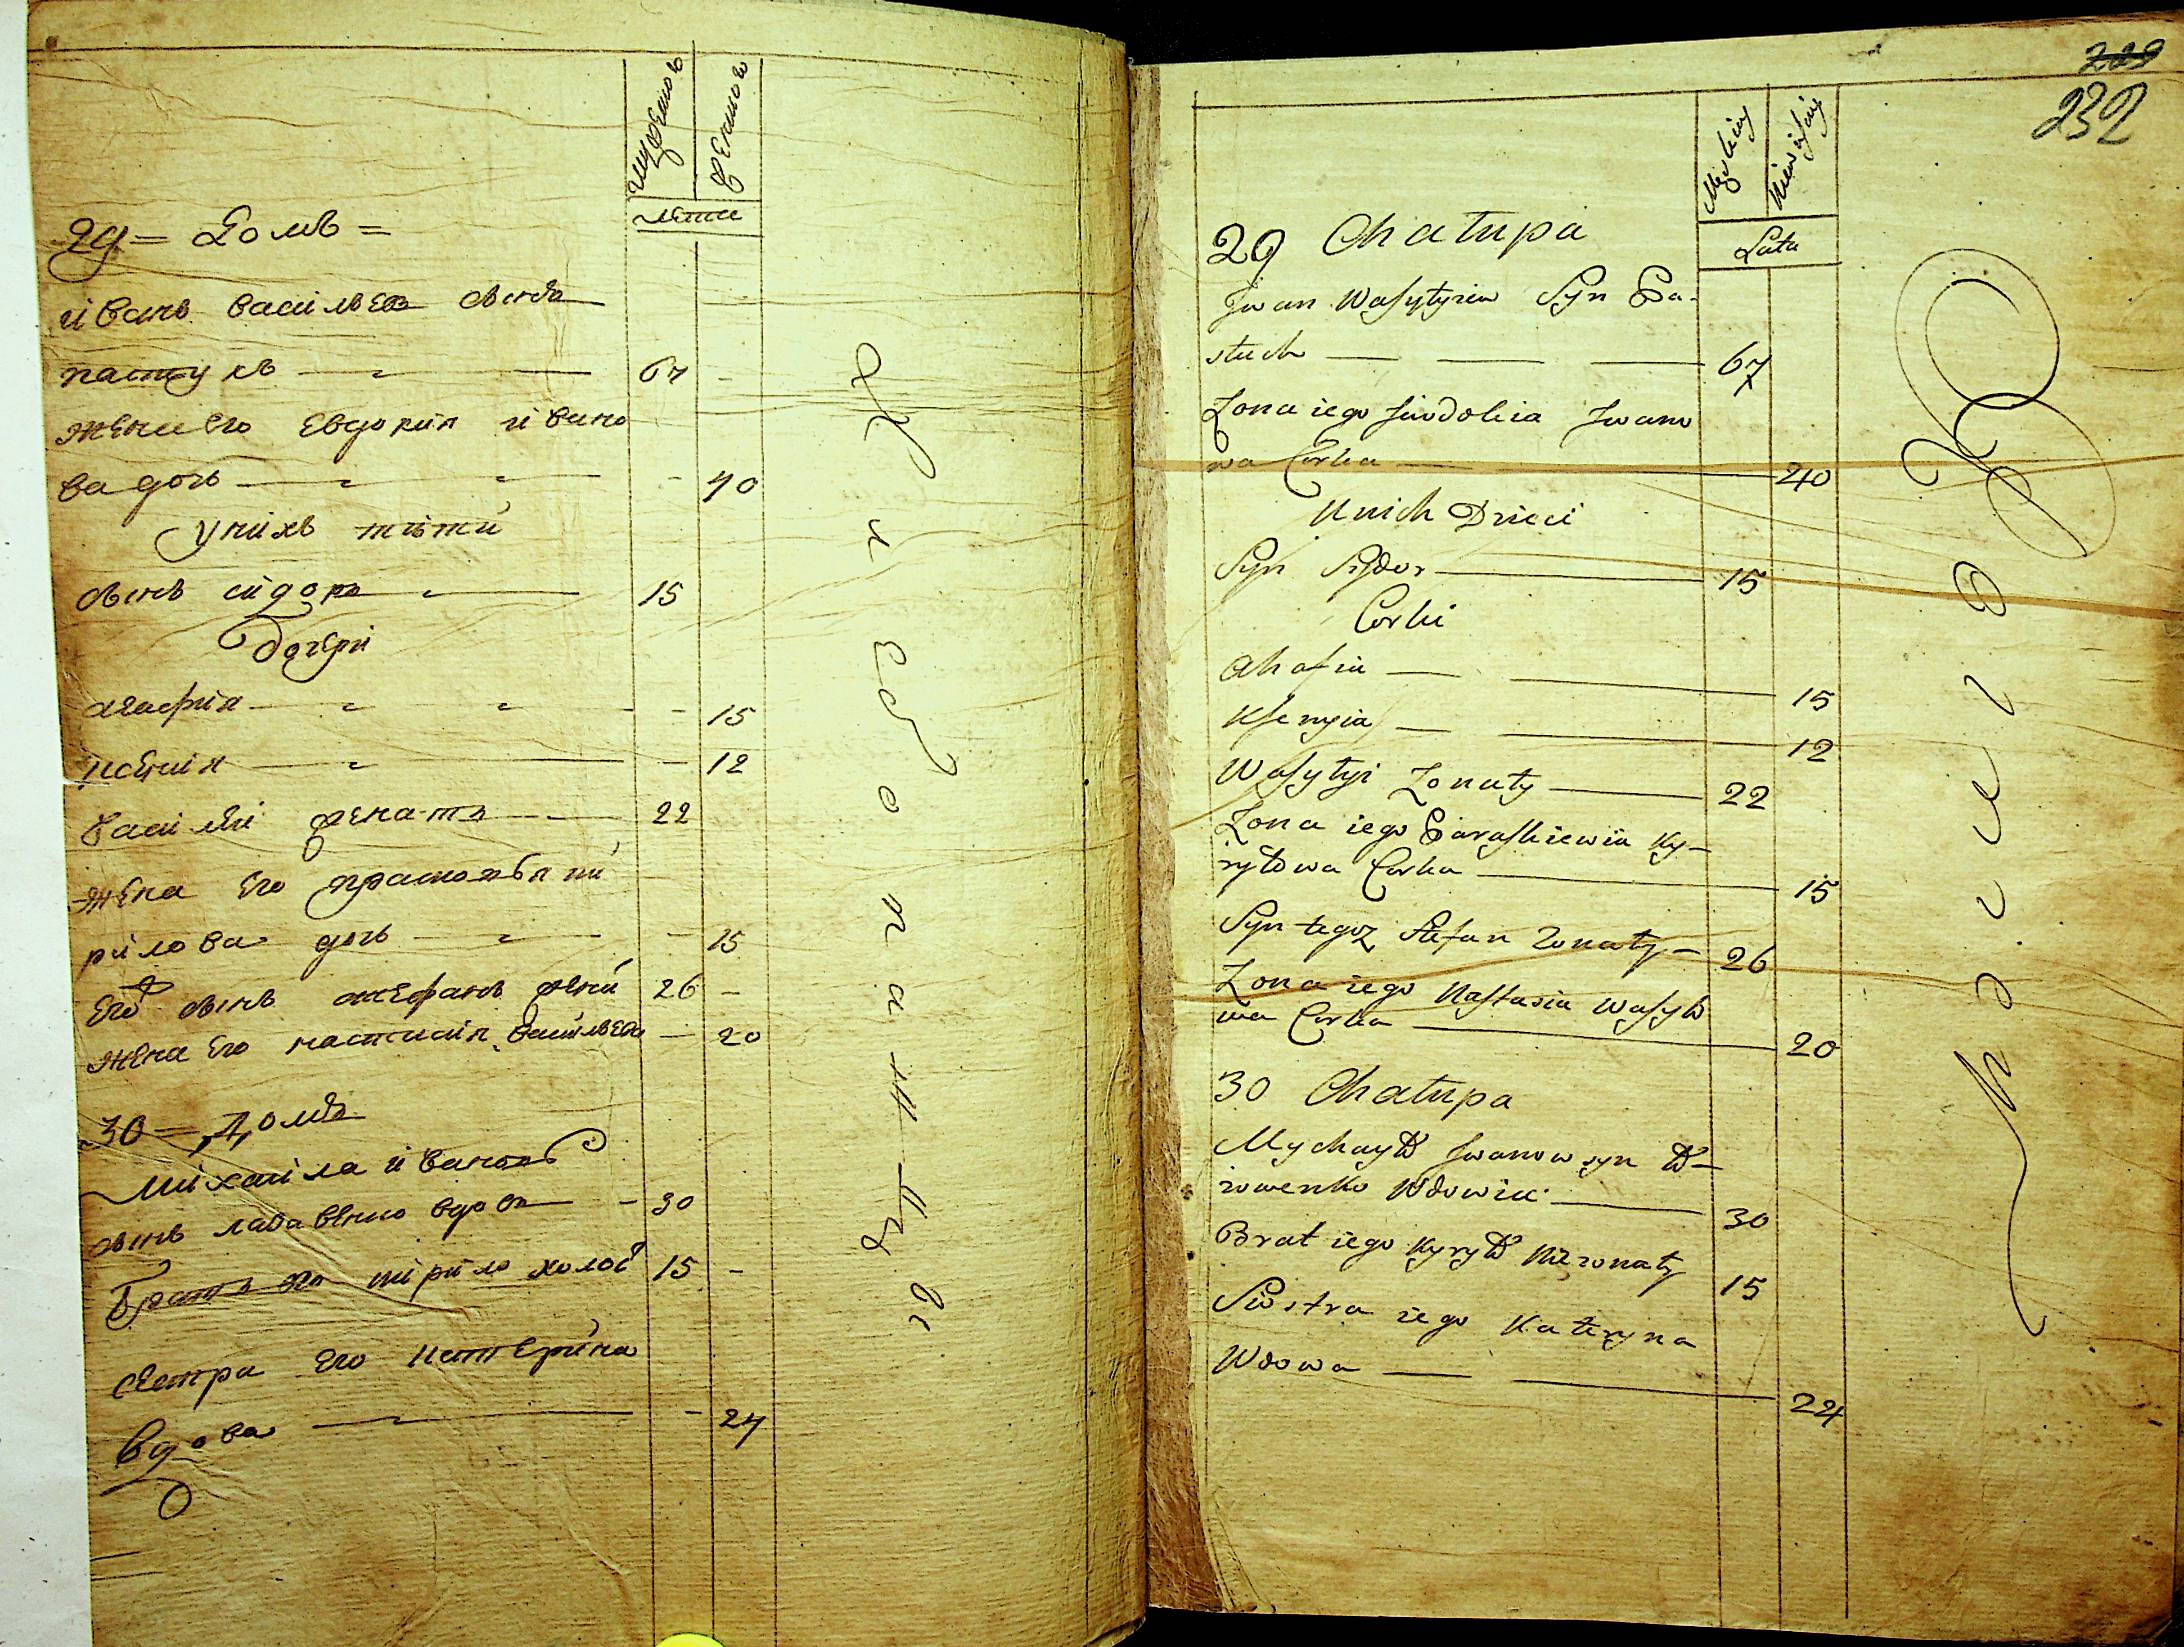 мужеска
женска
лета
29 = Домъ =
иванъ васильевъ сынъ
пастухъ 67
жена его Евдокия ивано
ва дочь 40
У нихъ дѣти
сынъ сидоръ 15
дочери
агафия 15
ксения 12
василий женатъ 22
жена его прасковья ки
рилова дочь 15
его сынъ стефанъ жена 26
жена его настасия васильева 20
30 = Домъ
михаила ивановъ
сынъ вдовъ 30
братъ его кирило холос 15
сестра его катерина
вдова 24
229
232
Męsczizny
Niewiasty
Lata
29 Chałupa
Jwan Wasylyiew Syn Pa-
stuch 67
Zona iego Jewdokia Jwano
wa Corka 40
U nich Dzieci
Syn Sydor 15
Corki
Ahafia 15
Ksenyia 12
Wasylyi Zonaty 22
Zona iego Paraskiewia Ky-
ryłowa Corka 15
Syn tegoz Stefan Zonaty 26
Zona iego Nastasia Wasylo
wa Corka 20
30 Chałupa
Mychayło Jwanow syn Ła-
zowenko Wdowiec 30
Brat iego Kyryło Niezonaty 15
Siostra iego Kateryna
Wdowa 24